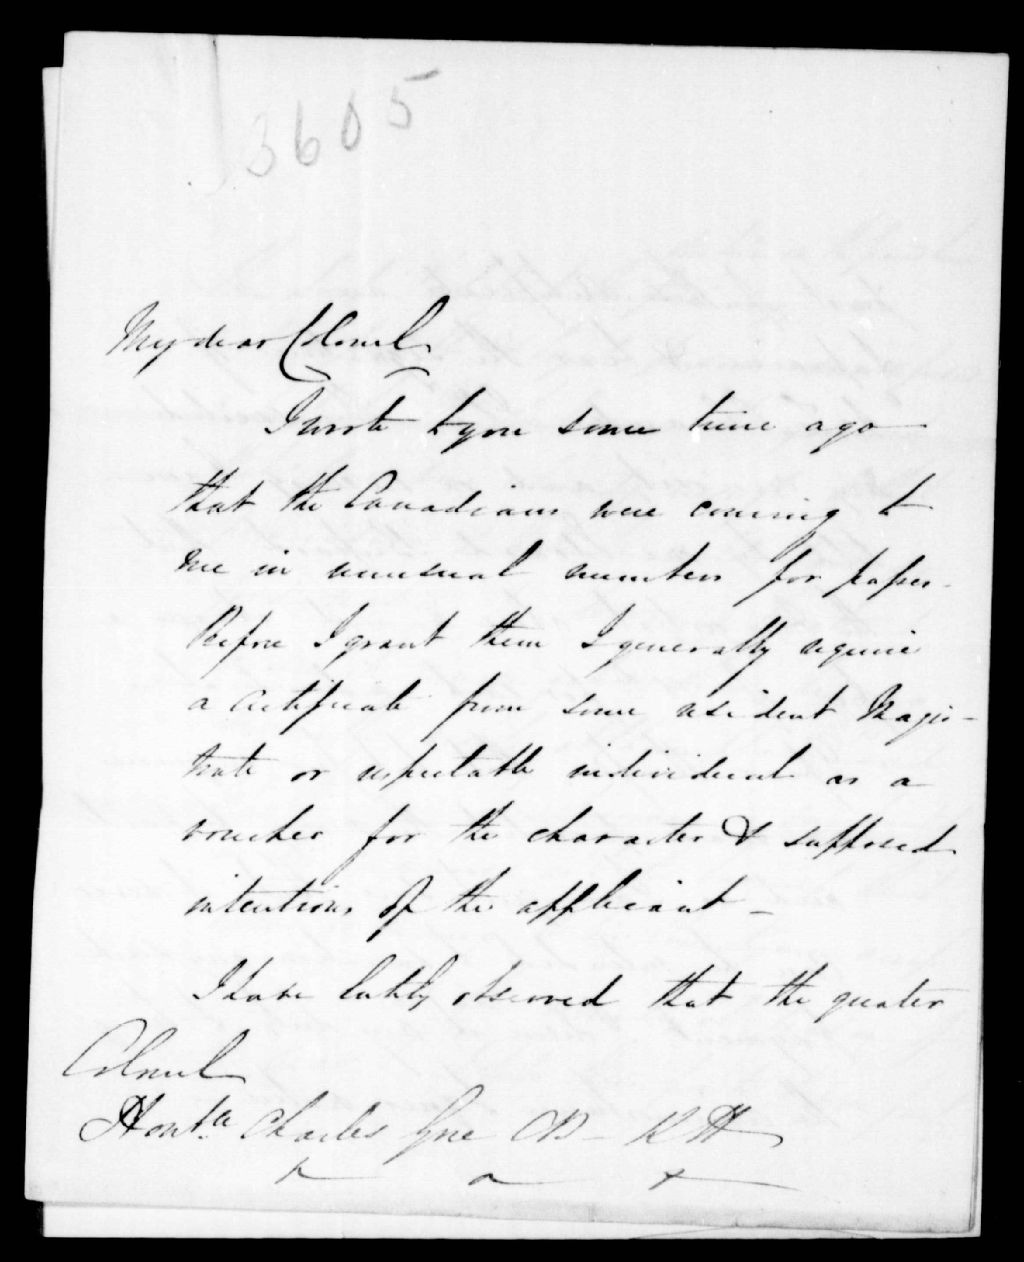 3605
My dear Colonel
I wrote to you some time ago
that the Canadians were coming to
me in unusual numbers for papers.
Before I grant them I generally require
a certificate from some resident Magis-
trate or respectable individual as a
voucher for the character & supposed
intentions of the applicant -
I have lately observed that the greater
Colonel
Honble Charles Gore CB - KH